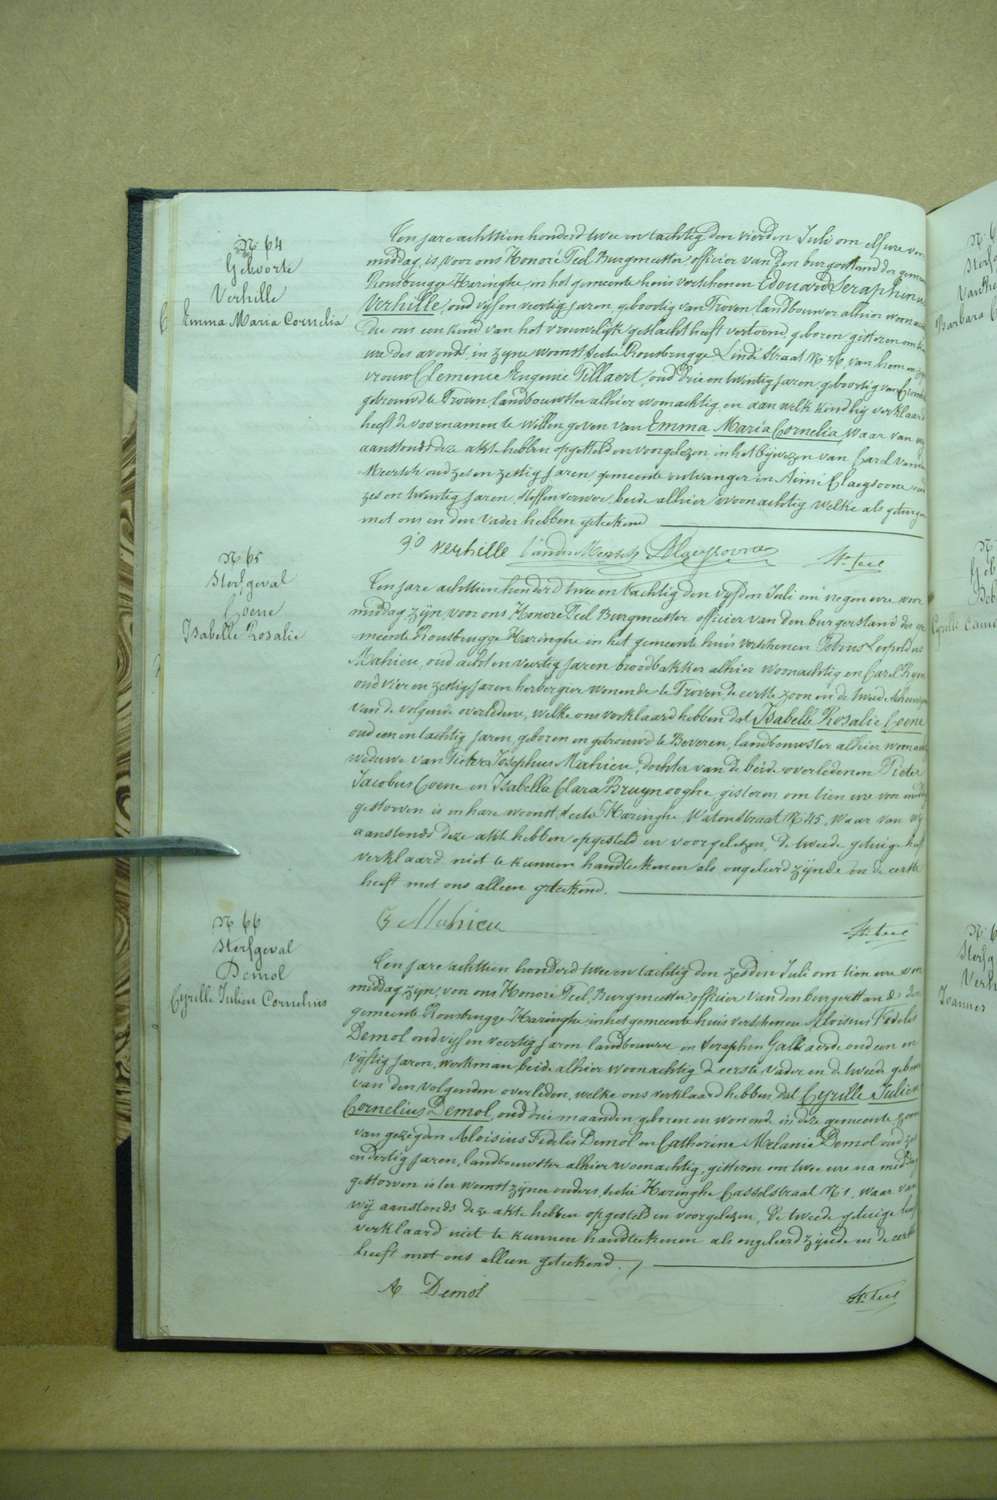 N 64
Geboorte
Verhille
Emma Maria Cornelia
Ten jare achttien honderd twee en tachtig den vierden Juli om elf ure voor
middag, is voor ons Honoré Teel Burgmeester officier van den burgerstand der gemeen
Rousbrugge Haringhe, in het gemeente huis verschenen Edouard Seraphinus
Verhille, oud vyf en veertig jaren, geboortig van Proven, landbouwer alhier woonach
die ons een kind van het vrouwelyk geslacht heeft vertoond, geboren gisteren om
ure des avonds, in zyne woonst, sectie Rousbrugge Linde Straat N 76, van hem en zyne
vrouw Clemence Eugenie Tillaert, oud drie en twintig jaren, geboortig van
getrouwd te Proven, landbouwster alhier woonachtig, en aan welk kind hy verklaard
heeft de voornamen te willen geven van Emma Maria Cornelia, waar van wy
aanstonds deze akte hebben opgesteld en voorgelezen in het bywezen van Carel Vander
Meersch oud zes en zestig jaren, gemeente ontvanger en Aimé Claeysoone oud
zes en twintig jaren, stoffenverwer beide alhier woonachtig welke als getuigen
met ons en den vader hebben geteekend
Verhille Vander Meersch A Claeysoone Hre Teel
N 65
Sterfgeval
Coene
Isabelle Rosalie
Ten jare achttien honderd twee en tachtig den vyfden Juli om negen ure voor
middag zyn, voor ons Honoré Teel Burgmeester officier van den burgerstand der ge
meente Rousbrugge Haringhe en het gemeente huis verschenen Leopoldus
Mahieu, oud acht en veertig jaren broodbakker alhier woonachtig en Carel
oud vier en zestig jaren herbergier wonende te Proven, de eerste zoon en de tweede
van de volgende overledene, welke ons verklaard hebben dat Isabelle Rosalie Coene
oud een en tachtig jaren, geboren en getrouwd te Beveren, landbouwster alhier woonach
weduwe van Pieter Josephus Mahieu, dochter van de beide overledenen Pieter
Jacobus Coene en Isabelle Clara Bruynooghe, gisteren om tien ure voor middag
gestorven is in hare woonst, sectie Haringhe, Watoustraat N 45, waar van wy
aanstonds deze akte hebben opgesteld en voorgelezen, De tweede getuige heeft
verklaard niet te kunnen handteekenen als ongeleerd zijnde en de eerste
heeft met ons alleen geteekend.
Mahieu Hre Teel
N 66
Sterfgeval
Demol
Cyrille Julien Cornelius
Ten jare achttien honderd twee en tachtig den zesden Juli om tien ure voor
middag zyn, voor ons Honoré Teel, Burgmeester officier van den burgerstand der
gemeente Rousbrugge Haringhe in het gemeente huis verschenen Aloisius Fidelis
Demol oud vyf en veertig jaren landbouwer en Seraphin Gallaerde oud een en
vyftig jaren, werkman, beide alhier woonachtig de eerste vader en de tweede gebuur
van den volgenden overleden, welke ons verklaard hebben, dat Cyrille Julien
Cornelius Demol, oud drie maanden, geboren en wonende in deze gemeente zoon
van gezegden Aloisius Fidelis Demol en Catherine Melanie Demol oud
en dertig jaren, landbouwster alhier woonachtig, gisteren om twee ure na middag
gestorven is ter woonst zyner ouders, sectie Haringhe Casselstraat N 1, waar van
wij aanstonds deze akte hebben opgesteld en voorgelezen, De tweede getuige heeft
verklaard niet te kunnen handteekenen als ongeleerd zynde en de eerste
heeft met ons alleen geteekend.
A Demol Hre Teel